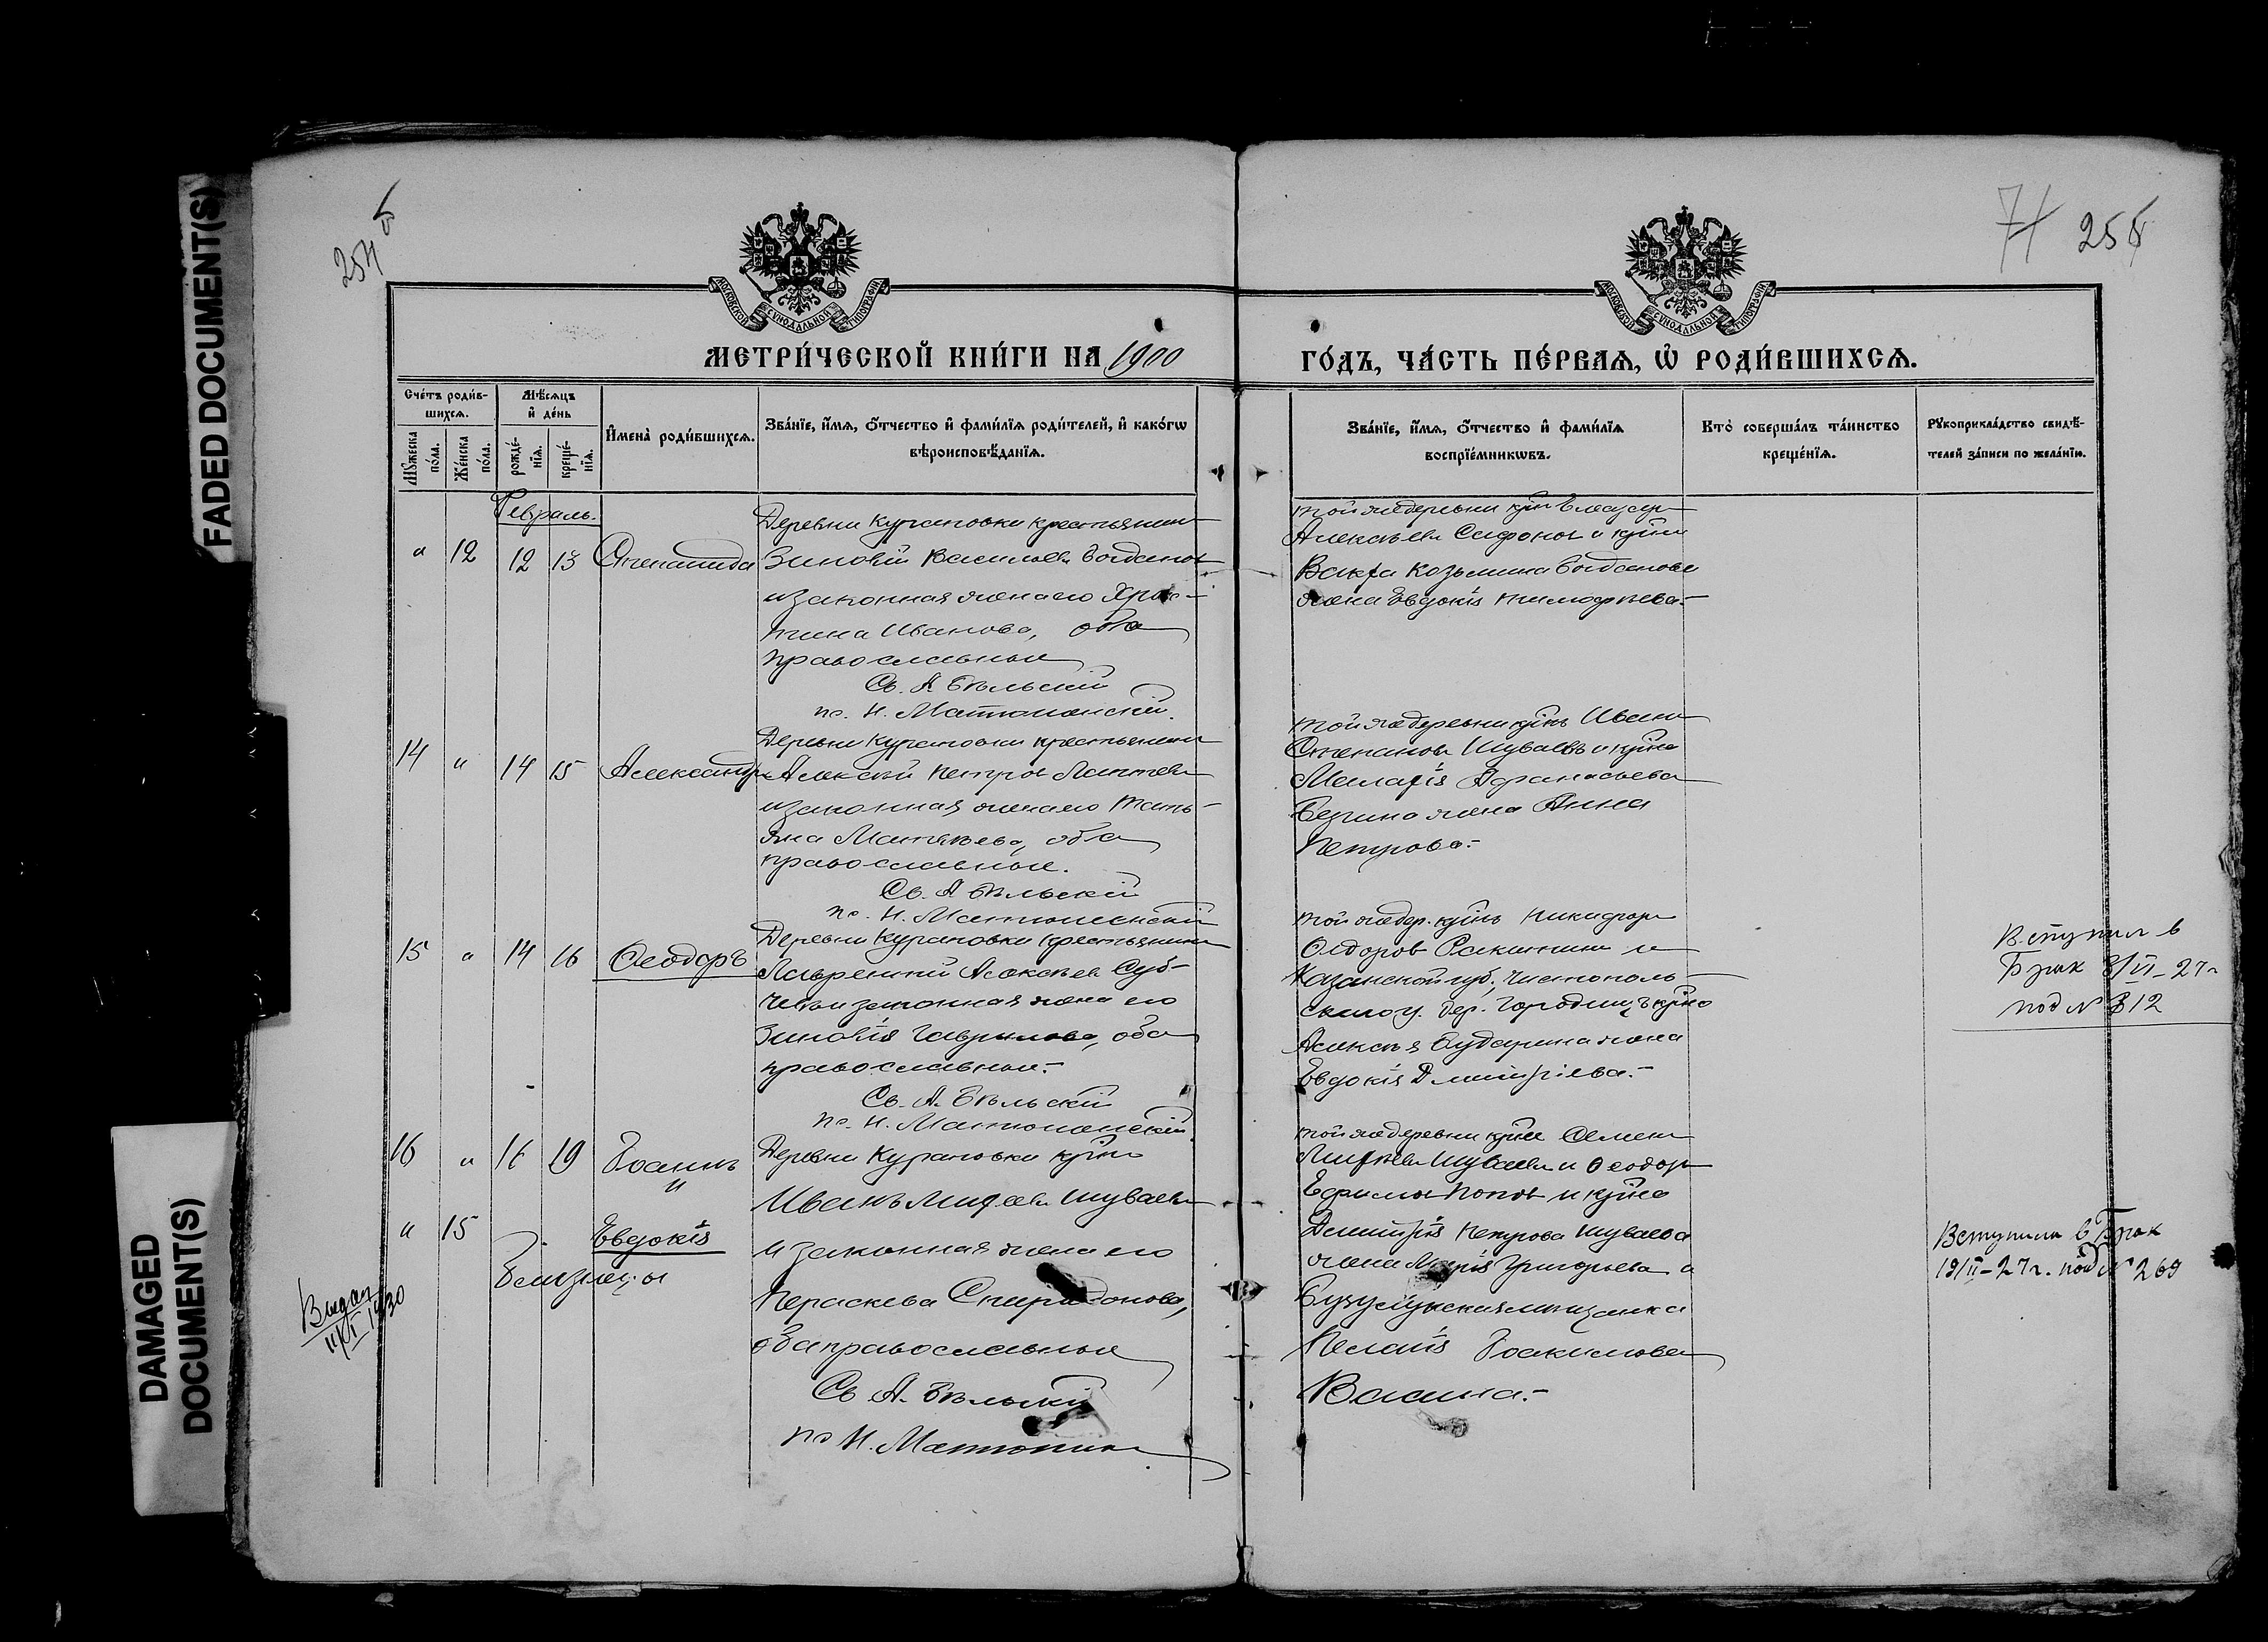 FADED DOCUMENT(S)
DAMAGED
DOCUMENT(S)
254
71 255
МОСКОВСКОЙ СѴНОДАЛЬНОЙ ТИПОГРАФІИ
МОСКОВСКОЙ СѴНОДАЛЬНОЙ ТИПОГРАФІИ
МЕТРИ́ЧЕСКОЙ КНИ́ГИ НА 1900
ГО́ДЪ, ЧА́СТЬ ПЕ́РВАѦ, Ѡ҆ РОДИ́ВШИХСѦ.
Сче́тъ роди́в-
шихсѧ.
Мѣ́сѧцъ
и҆ де́нь
Мꙋ́жеска
по́ла.
Же́нска
по́ла.
рожде́-
нїѧ.
креще́-
нїѧ.
И҆мена̀ роди́вшихсѧ.
Зва́нїе, и҆́мѧ, ѻ҆́тчество и҆ фами́лїѧ роди́телей, и҆ како́гѡ
вѣроисповѣ́данїѧ.
Зва́нїе, и҆́мѧ, ѻ҆́тчество и҆ фами́лїѧ
воспрїе́мникѡвъ.
Кто̀ соверша́лъ та́инство
креще́нїѧ.
Рꙋкоприкла́дство свидѣ́-
телей за́писи по жела́нїю.
Февраль.
" 12 12 13 Степанида
Деревни Курановки крестьянинъ
Зиновій Васильевъ Богдановъ
и законная жена его Хрис-
тина Иванова, оба
православные
Св. А. Бѣльскій
пс. Н. Матюшенскій
Той же деревни
Алексѣевъ Сафоновъ и
Козьмина Богданова
жена Евдокія Тимофѣева.-
14 " 14 15 Александръ
Деревни Курановки крестьянинъ
Алексѣй Петровъ Лаптевъ
и законная жена его Тать-
яна Матвѣева, оба
православные.
Св. А. Бѣльскій
пс. Н. Матюшенскій
Той же деревни Иванъ
Степановъ Шуваевъ и
Афанасьева
жена Анна
Петрова.-
15 " 14 16 Ѳеодоръ
Деревни Курановки крестьянинъ
Лаврентій Алексѣевъ Суб-
и законная жена его
Зиновія Гаврилова, оба
православные.-
Св. А. Бѣльскій
пс. Н. Матюшенскій
Той же дер. Никифоръ
Ѳедоровъ и
Казанской губ., Чистополь-
скаго у. дер.
Алексѣя жена
Евдокія Димитріева.-
Вступил в
Брак 8/VI-27г
под № 812
16 " 16 19 Іоаннъ
и
" 15 Евдокія
близнецы
Деревни Курановки
Иванъ Шуваевъ
и законная жена его
Параскева Спиридонова,
оба православные
Св. А. Бѣльскій
пс. Н.
Той же деревни Семенъ
Шуваевъ и Ѳеодоръ
Ефимовъ Поповъ и
Димитрія Петрова Шуваева
жена Марія Григорьева и
Бузулукская мѣщанка
Пелагія Іоакимова
Вступила в Брак
19/II-27г. под № 269
Выдан
11/I 1930